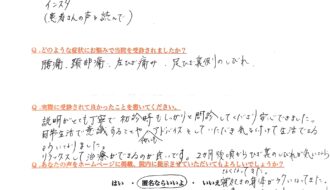 インスタ
(患者さんの声を読んで)
Q. どのような症状にお悩みで当院を受診されましたか?
腰痛、頚部痛、左ひざ痛み、足ひざ裏側のしびれ
Q. 実際に受診されて良かったことを書いてください。
説明がとても丁寧で初診時もしっかりと問診してくださり安心できました。
日常生活で意識することやアドバイスをしていただき気を付けて生活できる
ようになりました。
リラックスして治療ができるのが良いです。2ヶ月後頃から
Q. あなたの声をホームページに掲載、院内に掲示させていただいてもよろしいでしょうか?
はい ・ 匿名ならいいよ ・ いいえ